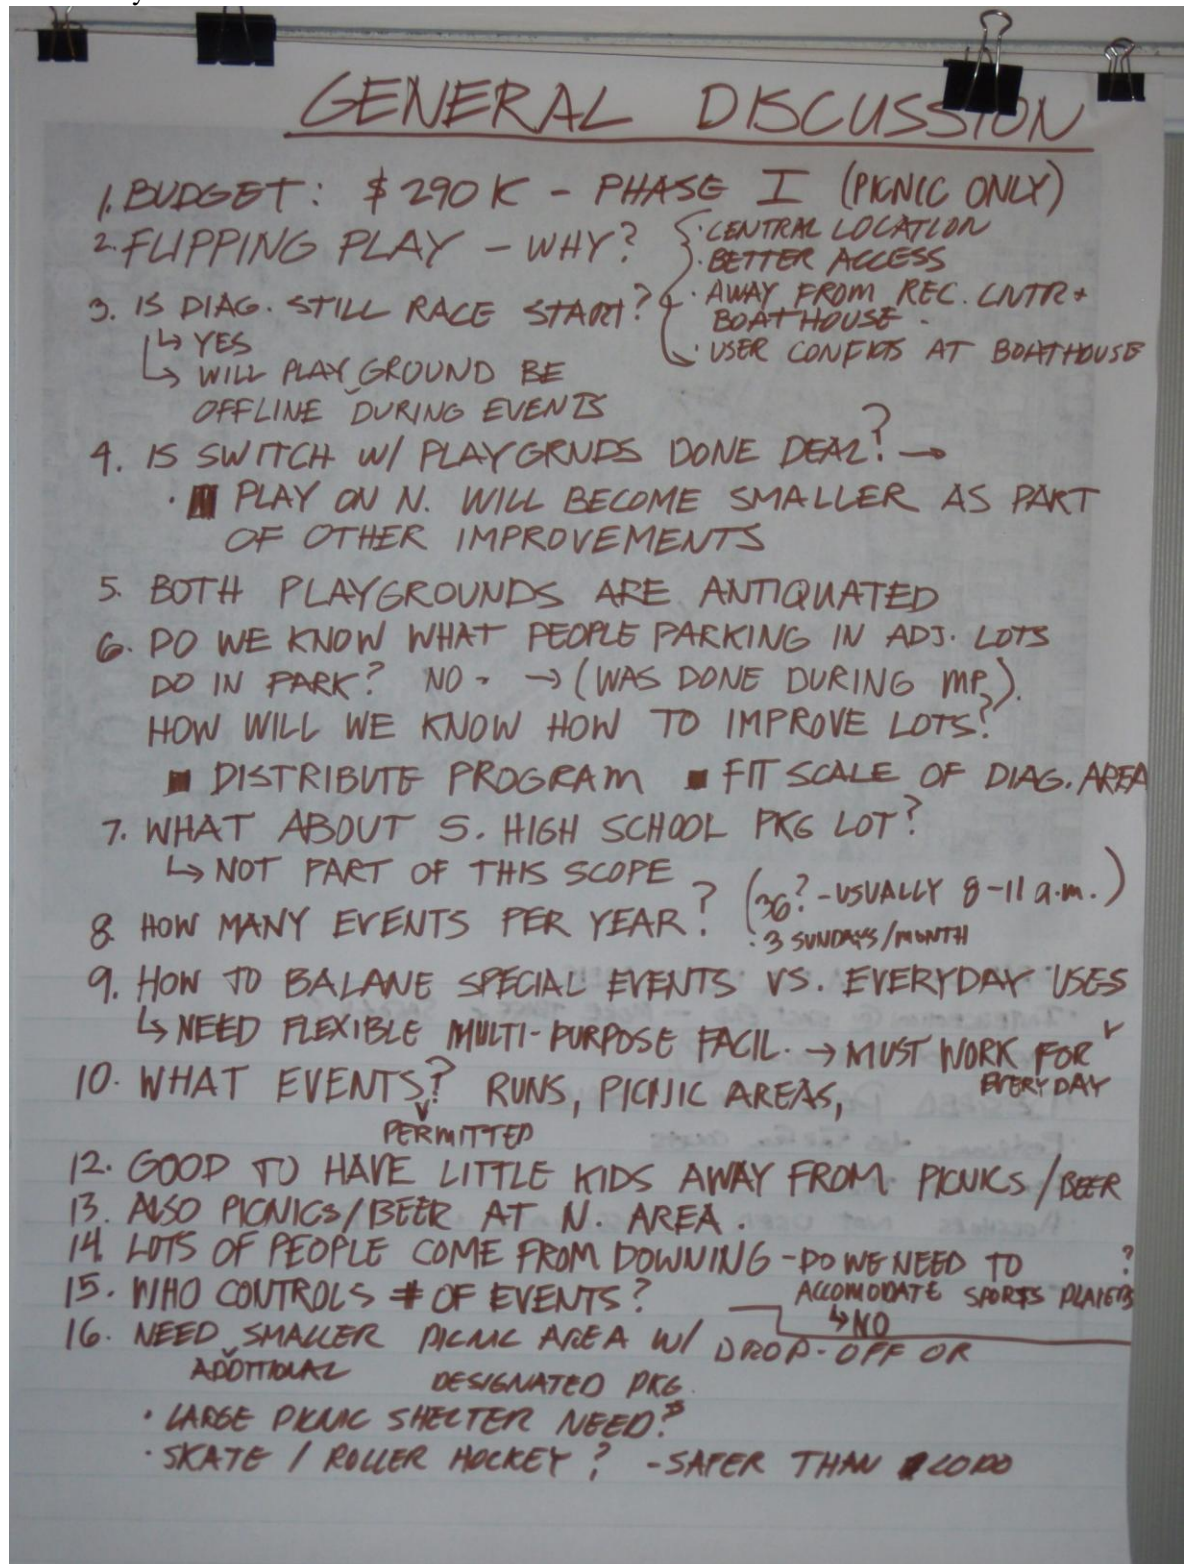 GENERAL DISCUSSION
1. BUDGET: $290K - PHASE I (PICNIC ONLY)
2. FLIPPING PLAY - WHY?
· CENTRAL LOCATION
· BETTER ACCESS
· AWAY FROM REC. CNTR +
BOATHOUSE.
· USER CONFICTS AT BOATHOUSE
3. IS DIAG. STILL RACE START?
↳ YES
↳ WILL PLAYGROUND BE
OFFLINE DURING EVENTS
4. IS SWITCH W/ PLAYGRNDS DONE DEAL? →
· PLAY ON N. WILL BECOME SMALLER AS PART
OF OTHER IMPROVEMENTS
5. BOTH PLAYGROUNDS ARE ANTIQUATED
6. DO WE KNOW WHAT PEOPLE PARKING IN ADJ. LOTS
DO IN PARK? NO - → (WAS DONE DURING MP).
HOW WILL WE KNOW HOW TO IMPROVE LOTS?
■ DISTRIBUTE PROGRAM ■ FIT SCALE OF DIAG. AREA
7. WHAT ABOUT S. HIGH SCHOOL PKG LOT?
↳ NOT PART OF THIS SCOPE
8. HOW MANY EVENTS PER YEAR? (36? - USUALLY 8-11 a.m.)
· 3 SUNDAYS/MONTH
9. HOW TO BALANE SPECIAL EVENTS VS. EVERYDAY USES
↳ NEED FLEXIBLE MULTI-PURPOSE FACIL. → MUST WORK FOR
EVERYDAY
10. WHAT EVENTS? RUNS, PICNIC AREAS,
PERMITTED
12. GOOD TO HAVE LITTLE KIDS AWAY FROM PICNICS/BEER
13. ALSO PICNICS/BEER AT N. AREA.
14 LOTS OF PEOPLE COME FROM DOWNING - DO WE NEED TO
ACCOMODATE SPORTS PLAYERS?
↳ NO
15. WHO CONTROLS # OF EVENTS?
16. NEED SMALLER PICNIC AREA W/ DROP-OFF OR
ADDITIONAL DESIGNATED PKG.
· LARGE PICNIC SHELTER NEED?
· SKATE / ROLLER HOCKEY? - SAFER THAN LODO